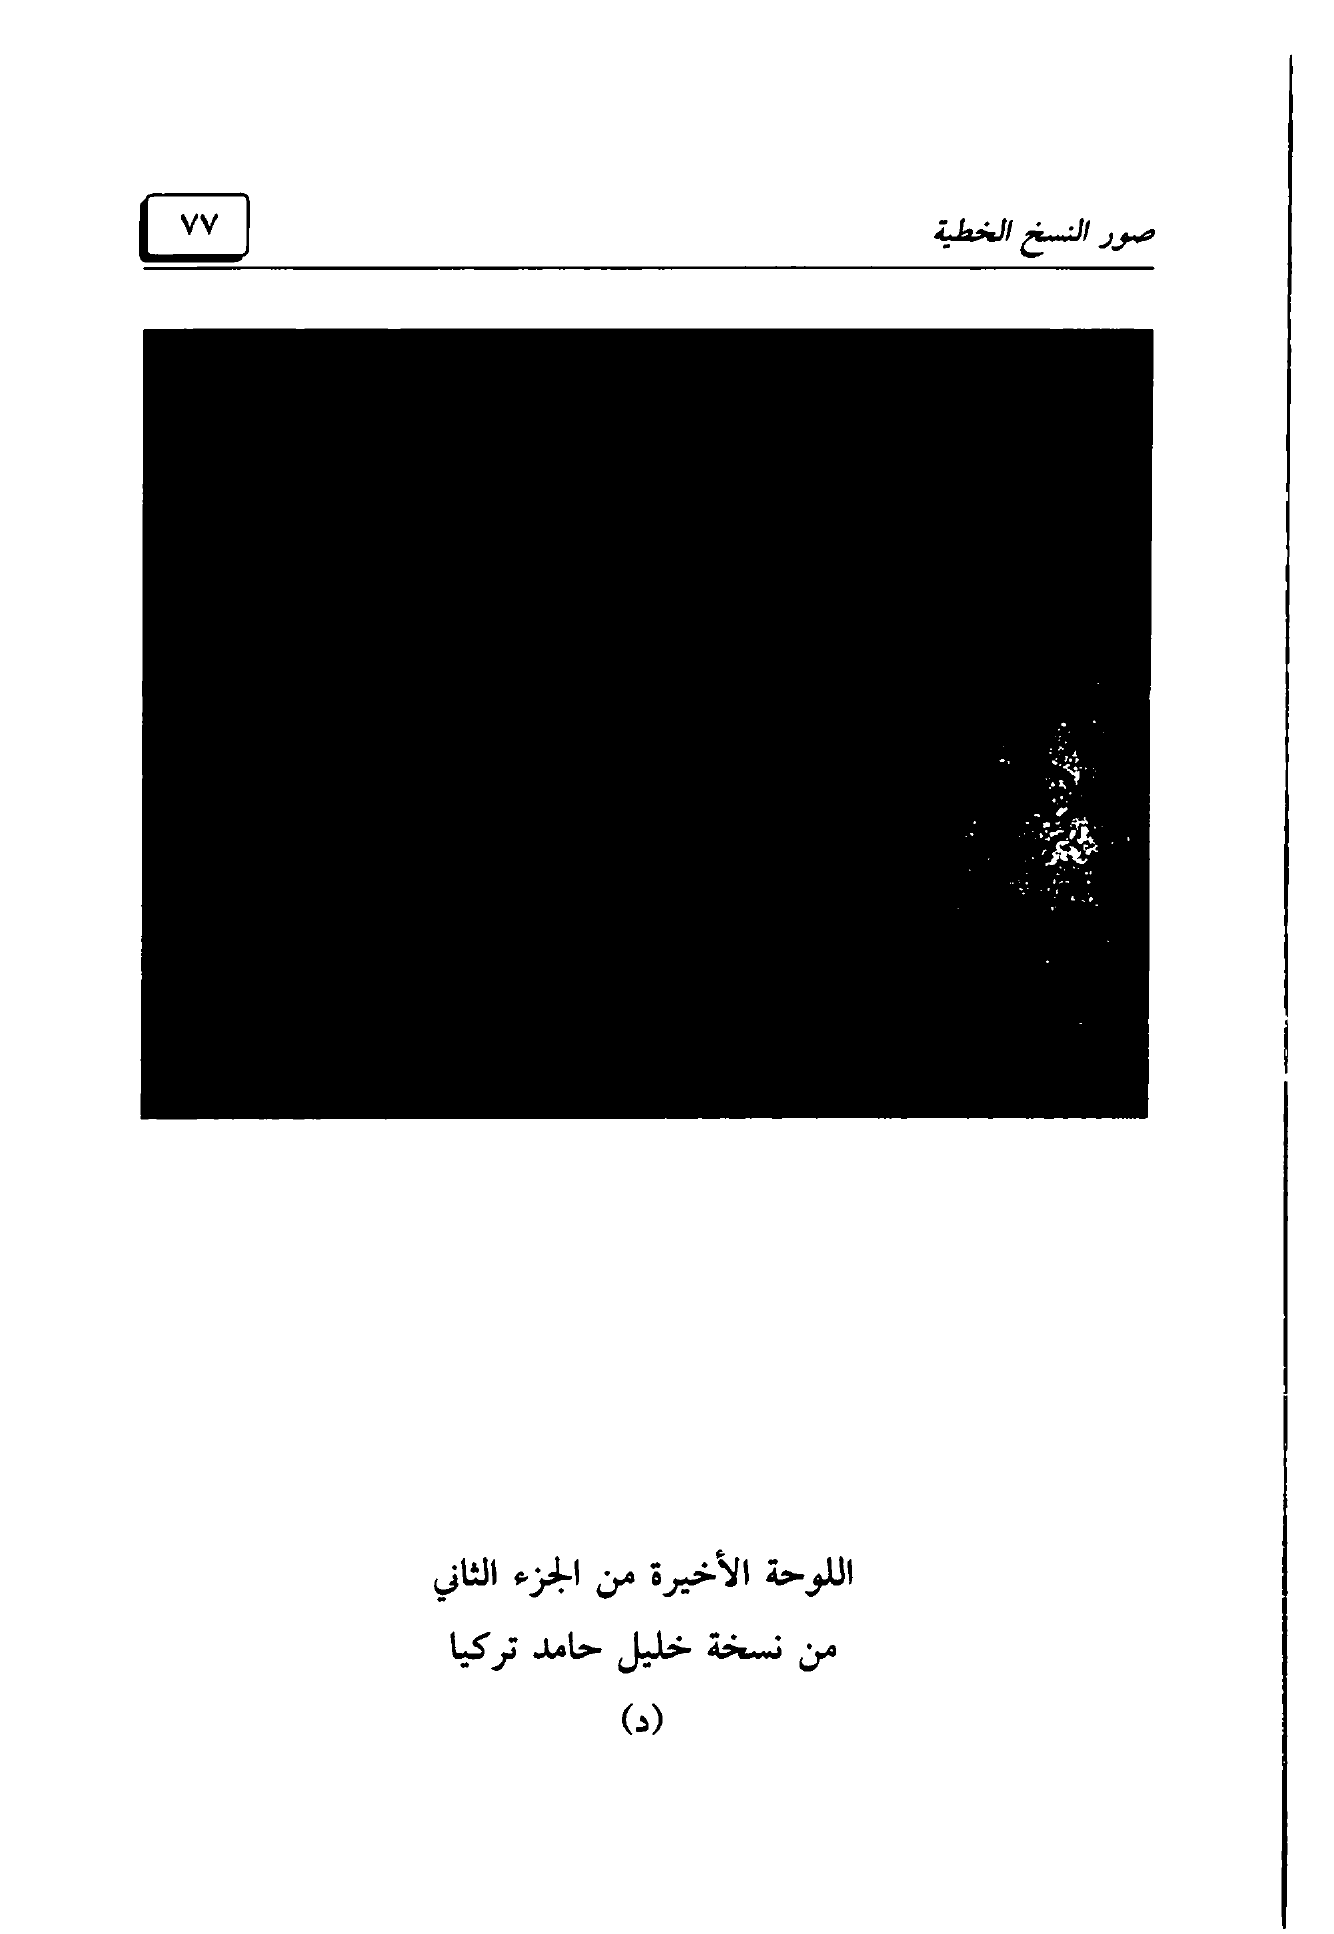 صور النسخ الخطية
٧٧
اللوحة الأخيرة من الجزء الثاني
من نسخة خليل حامد تركيا
(د)